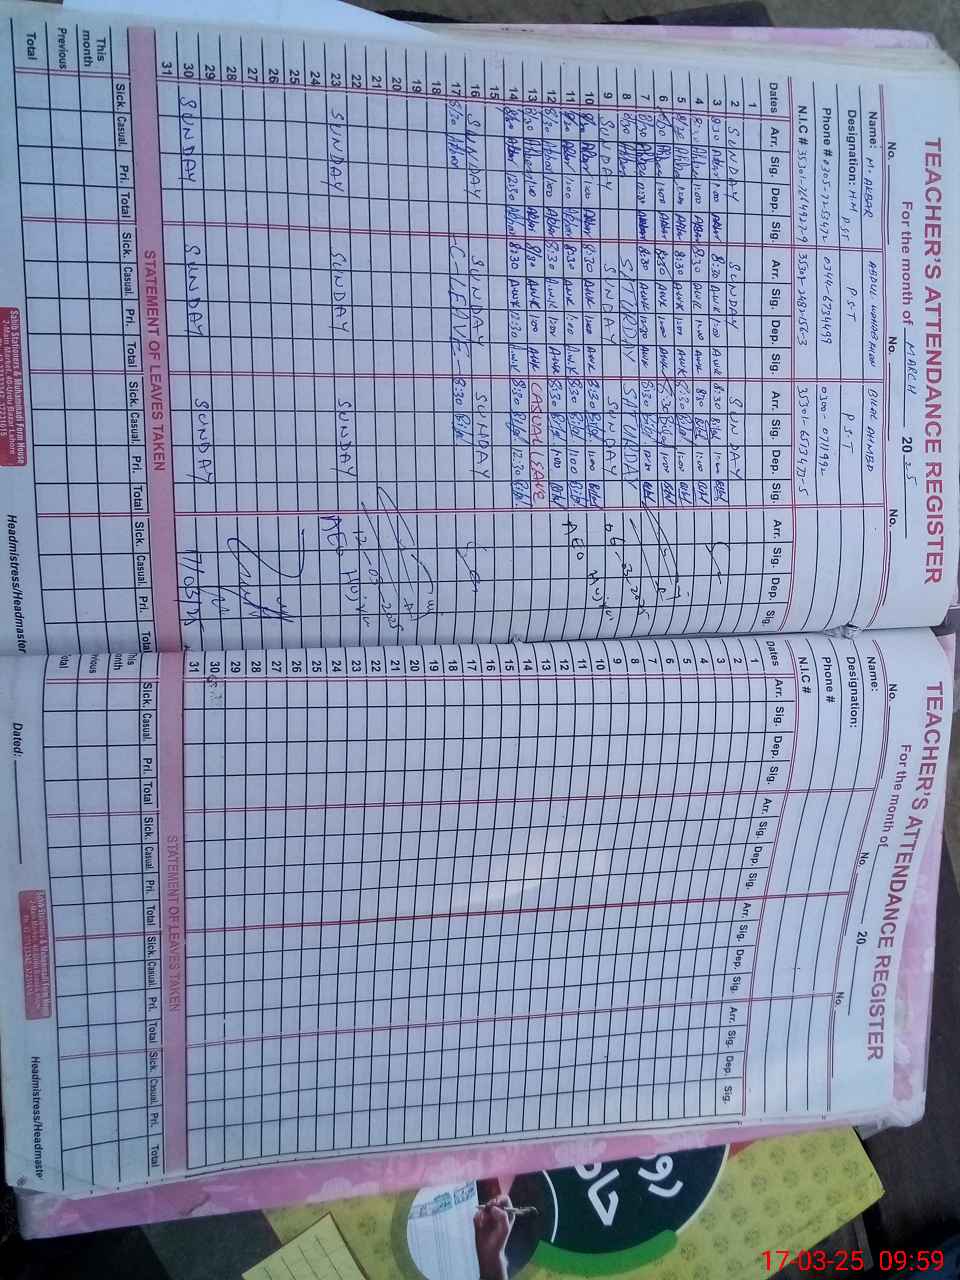 TEACHER'S ATTENDANCE REGISTER
For the month of MARCH 2025
No. No. No.
Name: M. AKBAR ABDUL BILAL AHMED
Designation: H.M P.ST P.S.T P.S.T
Phone # 0305-7255472 0344-6734499 0300-0711992
N.I.C #
Dates Arr. Sig. Dep. Sig. Arr. Sig. Dep. Sig. Arr. Sig. Dep. Sig. Arr. Sig. Dep. Sig.
1
2 SUNDAY SUNDAY SUNDAY
3 8:30 Akbar 1:00 Akbar 8:30 AWK 1:00 AWK 8:30 Bilal 1:00 Bilal
4 8:30 Akbar 1:00 Akbar 8:30 AWK 1:00 AWK 8:30 Bilal 1:00 Bilal
5 8:30 Akbar 1:00 Akbar 8:30 AWK 1:00 AWK 8:30 Bilal 1:00 Bilal
6 8:30 Akbar 1:00 Akbar 8:30 AWK 1:00 AWK 8:30 Bilal 1:00 Bilal
7 8:30 Akbar 12:30 Akbar 8:30 AWK 12:30 AWK 8:30 Bilal 12:30 Bilal
8 8:30 Akbar STURDAY STURDAY
9 SUNDAY SUNDAY SUNDAY 06-3-2025
10 8:30 Akbar 1:00 Akbar 8:30 AWK 1:00 AWK 8:30 Bilal 1:00 Bilal
11 8:30 Akbar 1:00 Akbar 8:30 AWK 1:00 AWK 8:30 Bilal 1:00 Bilal AEO
12 8:30 Akbar 1:00 Akbar 8:30 AWK 1:00 AWK 8:30 Bilal 1:00 Bilal
13 8:30 Akbar 1:00 Akbar 8:30 AWK 1:00 AWK CASUAL LEAVE
14 8:30 Akbar 12:30 Akbar 8:30 AWK 12:30 AWK 8:30 Bilal 12:30 Bilal
15
16 SUNDAY SUNDAY SUNDAY
17 8:30 Akbar -C-LEAVE- 8:30 Bilal
18
19
20
21
22 12-03-2025
23 SUNDAY SUNDAY SUNDAY AEO
24
25
26
27
28
29
30 SUNDAY SUNDAY SUNDAY 17/03/25
31
STATEMENT OF LEAVES TAKEN
Sick. Casual. Pri. Total Sick. Casual. Pri. Total Sick. Casual. Pri. Total Sick. Casual. Pri. Total
This month
Previous
Total
Sahib Stationers & Muhammadi Form House
2-Main Market 40-Urdu Bazar Lahore
Headmistress/Headmaster
TEACHER'S ATTENDANCE REGISTER
For the month of 20
No. No. No.
Name:
Designation:
Phone #
N.I.C #
Dates Arr. Sig. Dep. Sig. Arr. Sig. Dep. Sig. Arr. Sig. Dep. Sig. Arr. Sig. Dep. Sig.
1
2
3
4
5
6
7
8
9
10
11
12
13
14
15
16
17
18
19
20
21
22
23
24
25
26
27
28
29
30
31
STATEMENT OF LEAVES TAKEN
Sick. Casual. Pri. Total Sick. Casual. Pri. Total Sick. Casual. Pri. Total Sick. Casual. Pri. Total
Dated:
Headmistress/Headmaste
17-03-25 09:59